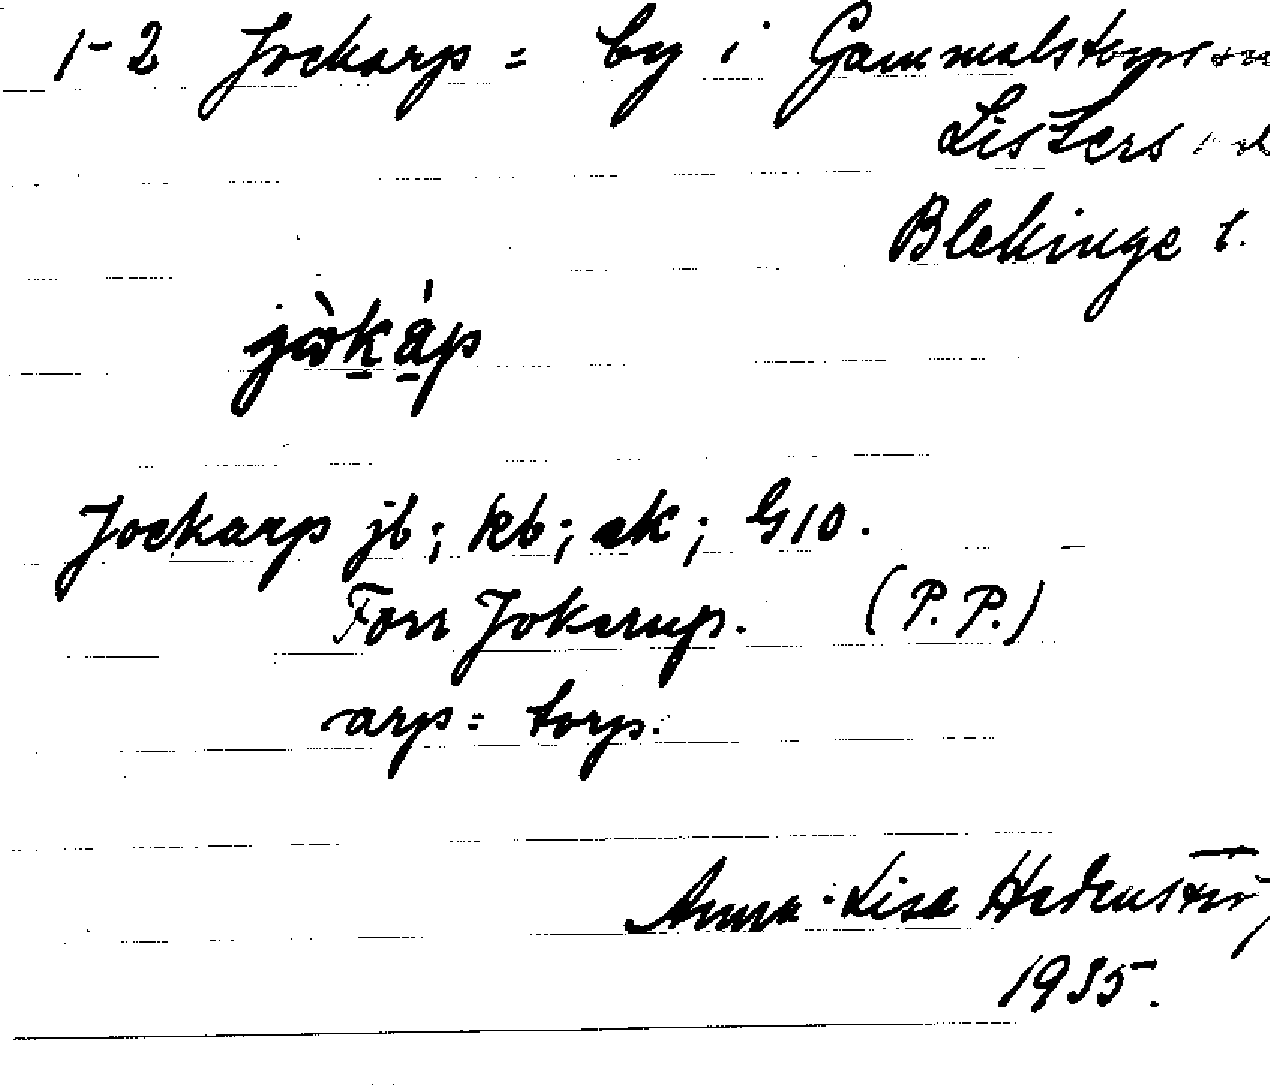 1-2 Jockarp = by i Gammalstorps sn
Listers
Blekinge l.
Jockarp jb; kb; ek; G10.
Förr Jokerup. (P.P.)
arp = torp.
Anna-Lisa
1935.